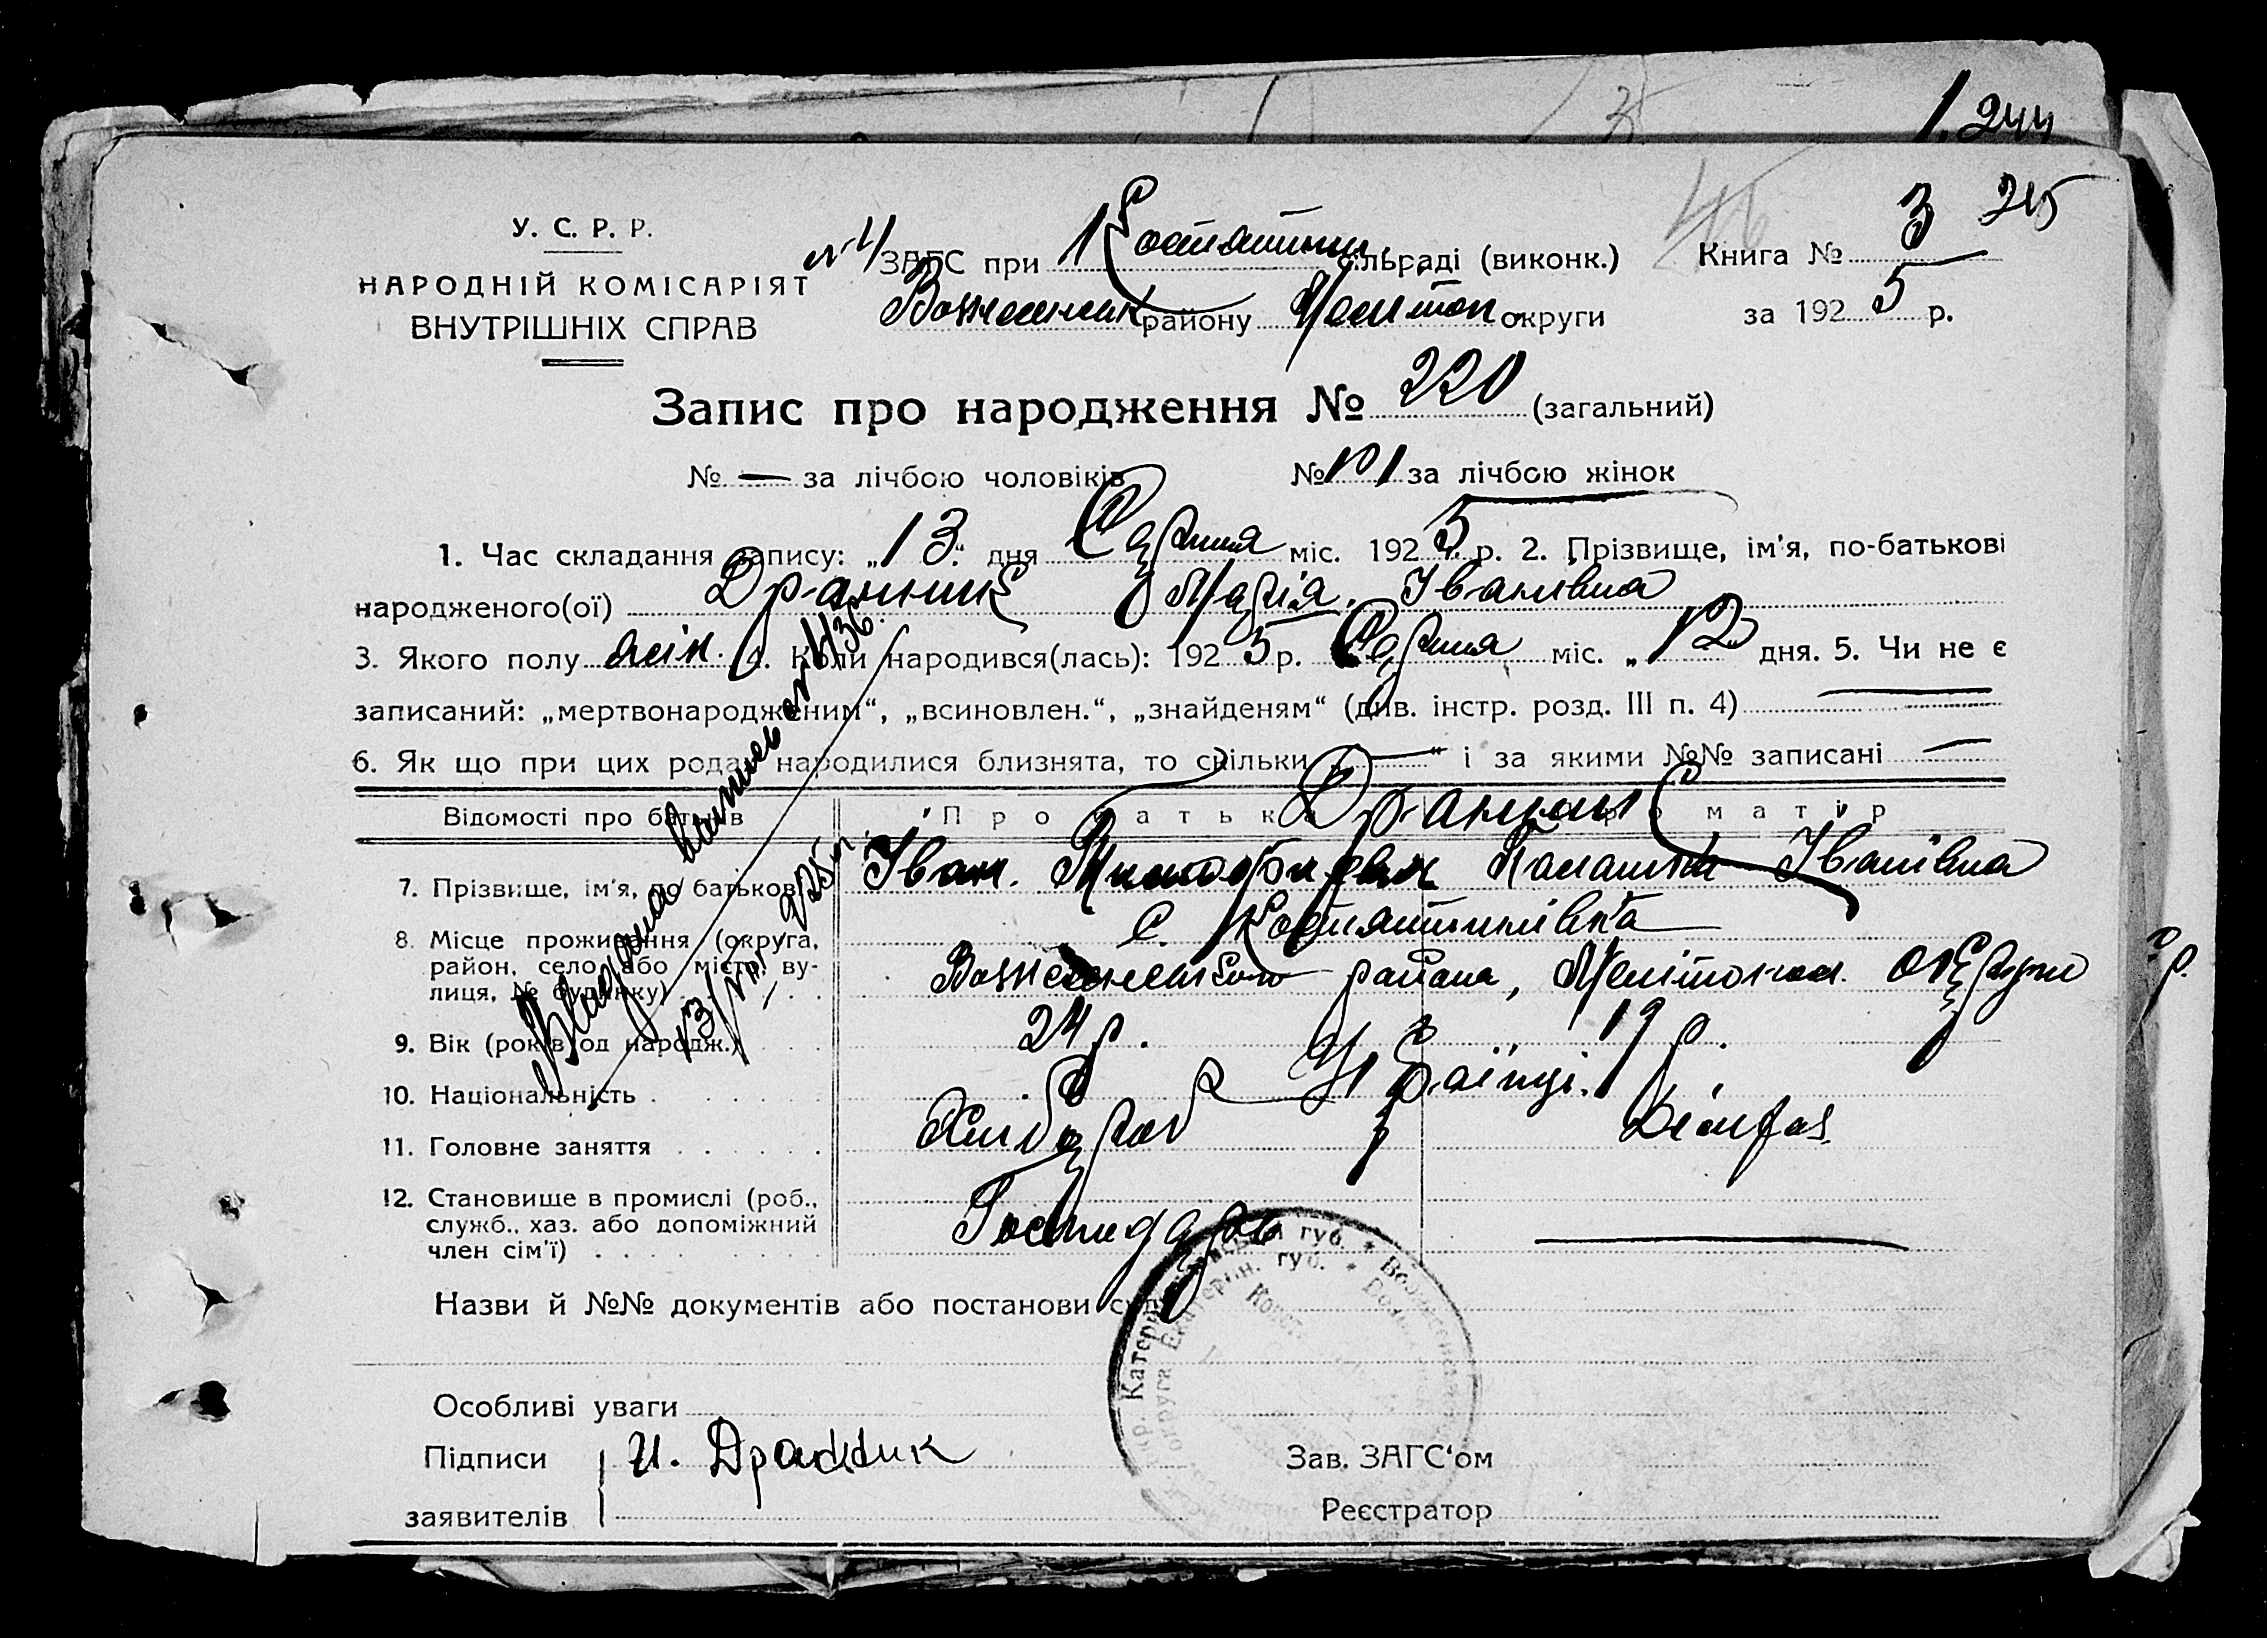 1. 244
46
У. С. Р. Р.
НАРОДНІЙ КОМІСАРІЯТ
ВНУТРІШНІХ СПРАВ
ЗАГС при Костянтин. сільраді (виконк.) Книга № 3 245
Вознесенськ району Мелітоп. округи за 1925 р.
Запис про народження № 220 (загальний)
№ — за лічбою чоловіків № 101 за лічбою жінок
1. Час складання запису: „13“ дня Серпня міс. 1925 р. 2. Прізвище, ім'я, по-батькові
народженого(ої) Дранник Марія Іванівна
3. Якого полу жін. 4. Коли народився(лась): 1925 р. Серпня міс. „12 дня. 5. Чи не є
записаний: „мертвонародженим“, „всиновлен.“, „знайденям“ (див. інстр. розд. III п. 4) —
6. Як що при цих родах народилися близнята, то скільки „—“ і за якими №№ записані —
Відомості про батьків Про батька Про матір
Дранник
7. Прізвище, ім'я, по батькові Іван Никифорович Іванівна
8. Місце проживання (округа, район, село або місто, вулиця, № будинку) с. Костянтинівка
Вознесенського района, Меліто округи
9. Вік (років од народж.) 24 р. 19 р.
10. Національність Українці
11. Головне заняття Хлібороб
12. Становище в промислі (роб., служб., хаз. або допоміжний член сім'ї) Господарь —
Видана
13/VIII 925 р.
Назви й №№ документів або постанови суду
Особливі уваги
Підписи И. Дранник Зав. ЗАГС'ом
заявителів Реєстратор